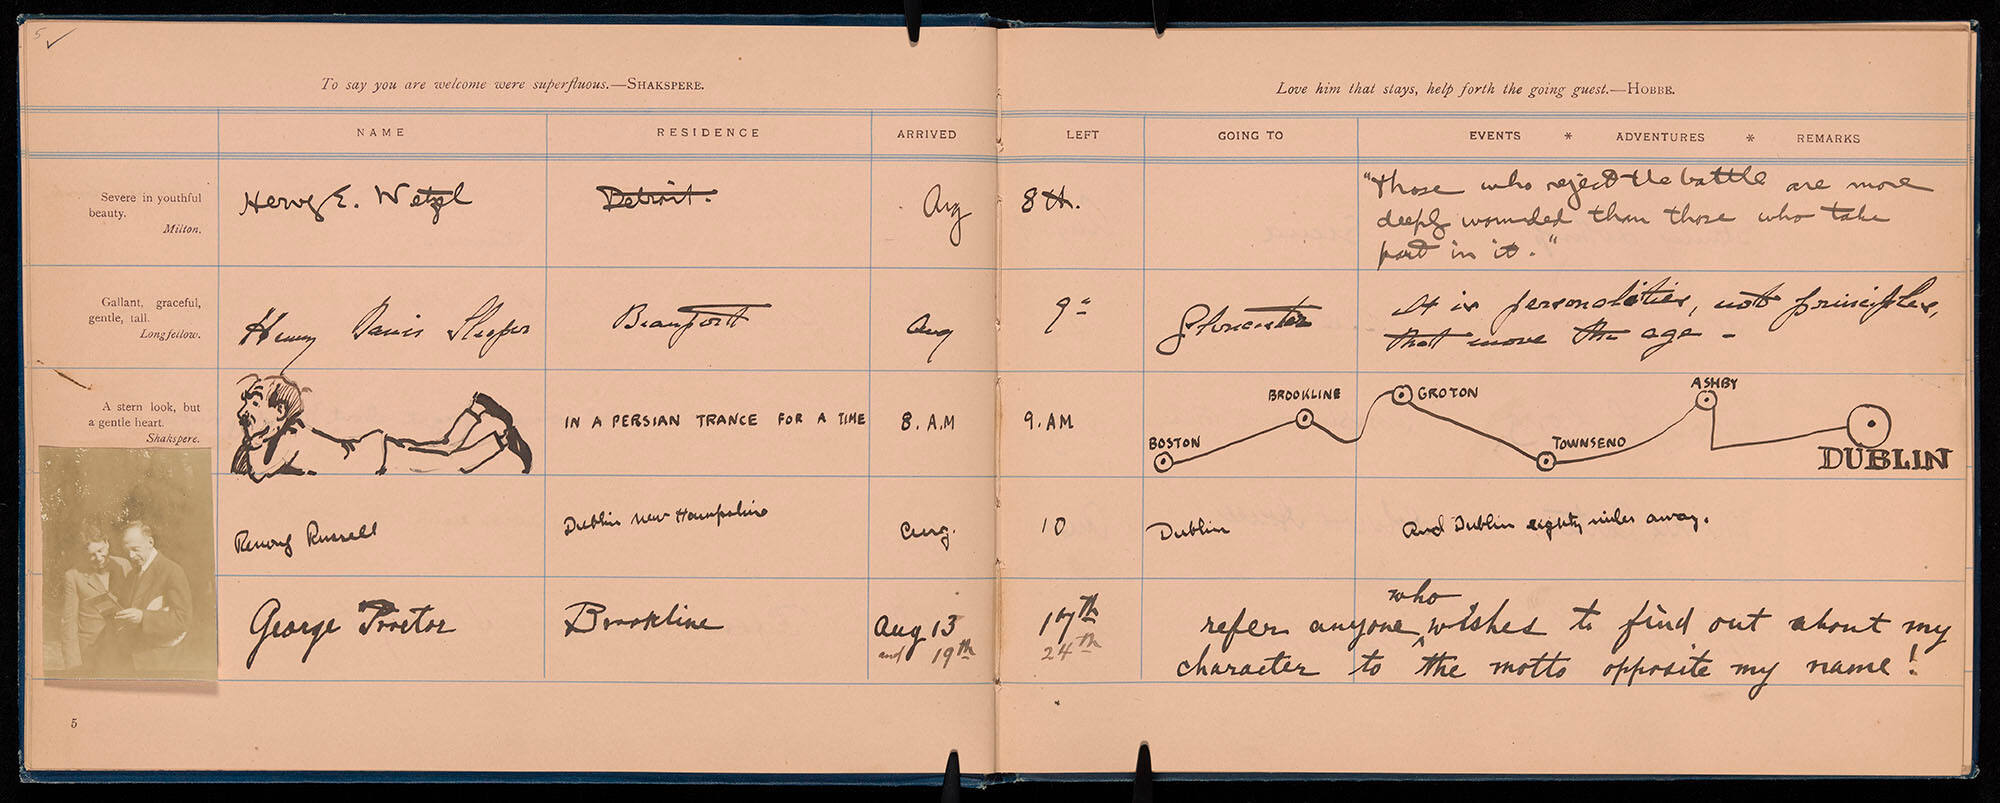 5
To say you are welcome were superfluous.—SHAKSPERE.
Love him that stays, help forth the going guest.—HOBBE.
NAME RESIDENCE ARRIVED LEFT GOING TO EVENTS * ADVENTURES * REMARKS
Severe in youthful
beauty.
Milton.
Hervey E. Wetzel Detroit. Aug 8th.
"Those who reject the battle are more
deeply wounded than those who take
part in it."
Gallant, graceful,
gentle, tall.
Longfellow.
Henry Davis Sleeper Beauport Aug 9" Gloucester
It is personalities, not principles,
that move the age –
A stern look, but
a gentle heart.
Shakspere.
IN A PERSIAN TRANCE FOR A TIME 8. A.M 9. AM
BOSTON BROOKLINE GROTON TOWNSEND ASHBY DUBLIN
Russell Dublin New Hampshire Aug. 10 Dublin And Dublin eighty miles away.
George Proctor Brookline Aug 13 17th
and 19th 24th
refer anyone who wishes to find out about my
character to the motto opposite my name!
5